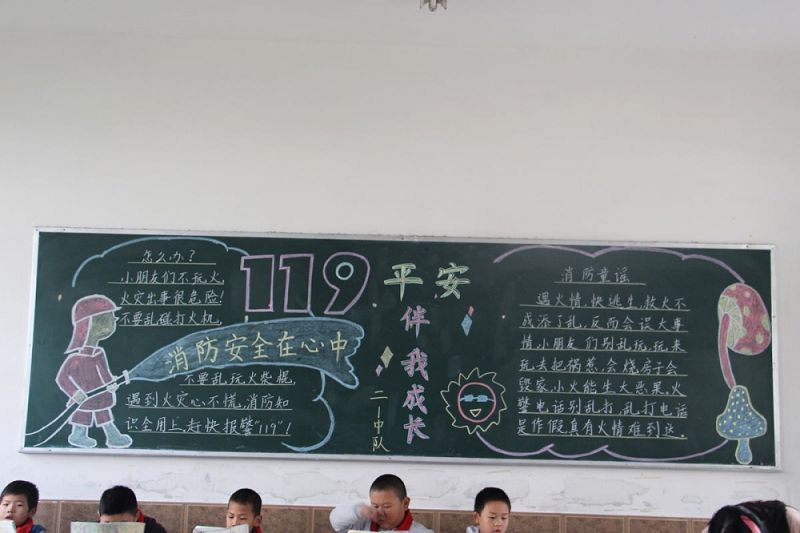 怎么办?
小朋友们不玩火,
火灾出事很危险!
不要乱碰打火机,
消防安全在心中
不要乱玩火柴棍,
遇到火灾心不慌,消防知
识全用上,赶快报警"119"!
119
平安
伴我成长
二一中队
消防童谣
遇火情快逃生,救火不
成添了乱,反而会误大事
情小朋友们别乱玩,玩来
玩去把祸惹,会烧房子会
毁家,小火能生大恶果,火
警电话别乱打,乱打电话
是作假,真有火情难到达.